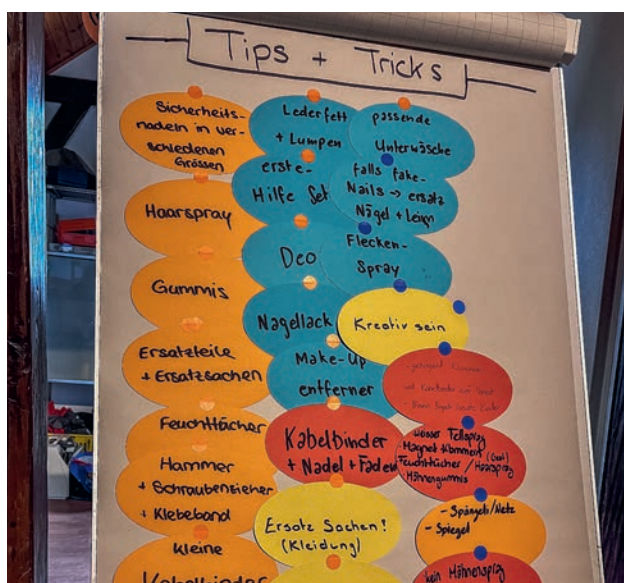 Tips + Tricks
Sicherheits-
nadeln in ver-
schiedenen
Grössen
Haarspray
Gummis
Ersatzteile
+ Ersatzsachen
Feuchttücher
Hammer
+ Schraubenzieher
+ Klebeband
Kleine
Kabelbinder
Lederfett
+ Lumpen
erste-
Hilfe Set
Deo
Nagellack
Make-Up
entferner
Kabelbinder
+ Nadel + Faden
Ersatz Sachen!
(Kleidung)
passende
Unterwäsche
falls fake-
Nails → ersatz
Nägel + Leim
Flecken-
Spray
Kreativ sein
weisser Fellspray
Magnet
Feuchttücher / Haarspray
Mähnengummis
- Spängeli/Netz
- Spiegel
kein Mähnenspray